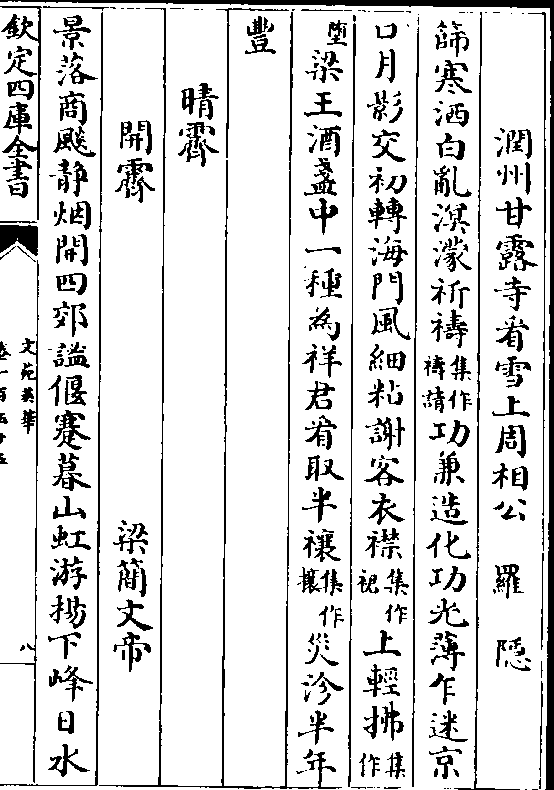 潤州甘露寺看雪上周相公　羅隱
篩寒洒白亂溟濛祈禱集作禱請功兼造化功光薄乍迷京
口月影交初轉海門風細粘謝客衣襟集作裾上輕拂集作
墮梁王酒盞中一種為祥君看取半禳集作攘災沴半年
豐
晴霽
開霽　梁簡文帝
景落商飈静烟開四郊謐偃蹇暮山虹游揚下峰日水
欽定四庫全書
文苑英華
卷一百五十五
八